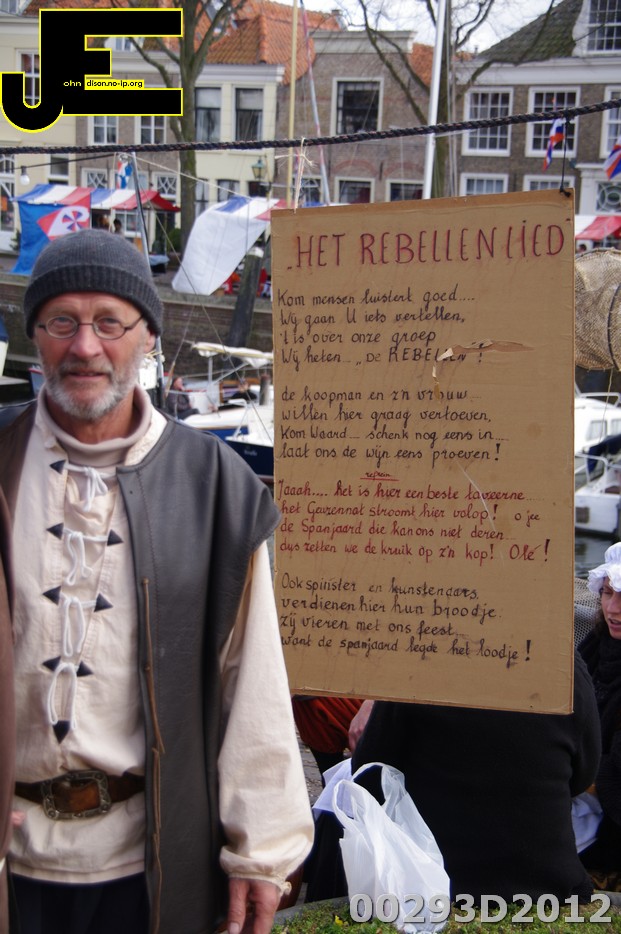 JE
ohn dison.no-ip.org
HET REBELLENLIED
Kom mensen luistert goed....
Wij gaan U iets vertellen,
't is over onze groep
Wij heten... „De REBELLEN"!
de koopman en z'n vrouw
willen hier graag vertoeven,
Kom Waard... schenk nog eens in...
laat ons de wijn eens proeven!
refrein
Jaaah.... het is hier een beste taveerne
het Geuzennat stroomt hier volop! o jee
de Spanjaard die kan ons niet deren...
dus zetten we de kruik op z'n kop! Olé!
Ook spinster en kunstenaars,
verdienen hier hun broodje.
zij vieren met ons feest...
want de spanjaard legde het loodje!
00293D2012